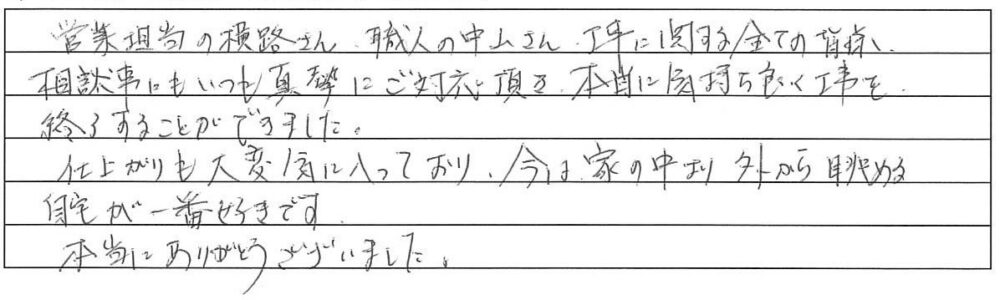 営業担当の横路さん、職人の中山さん、工事に関する全ての皆様、
相談事にもいつも真摯にご対応頂き、本当に気持ち良く工事を
終了することができました。
仕上がりも大変気に入っており、今は家の中より外から眺める
自宅が一番好きです。
本当にありがとうございました。